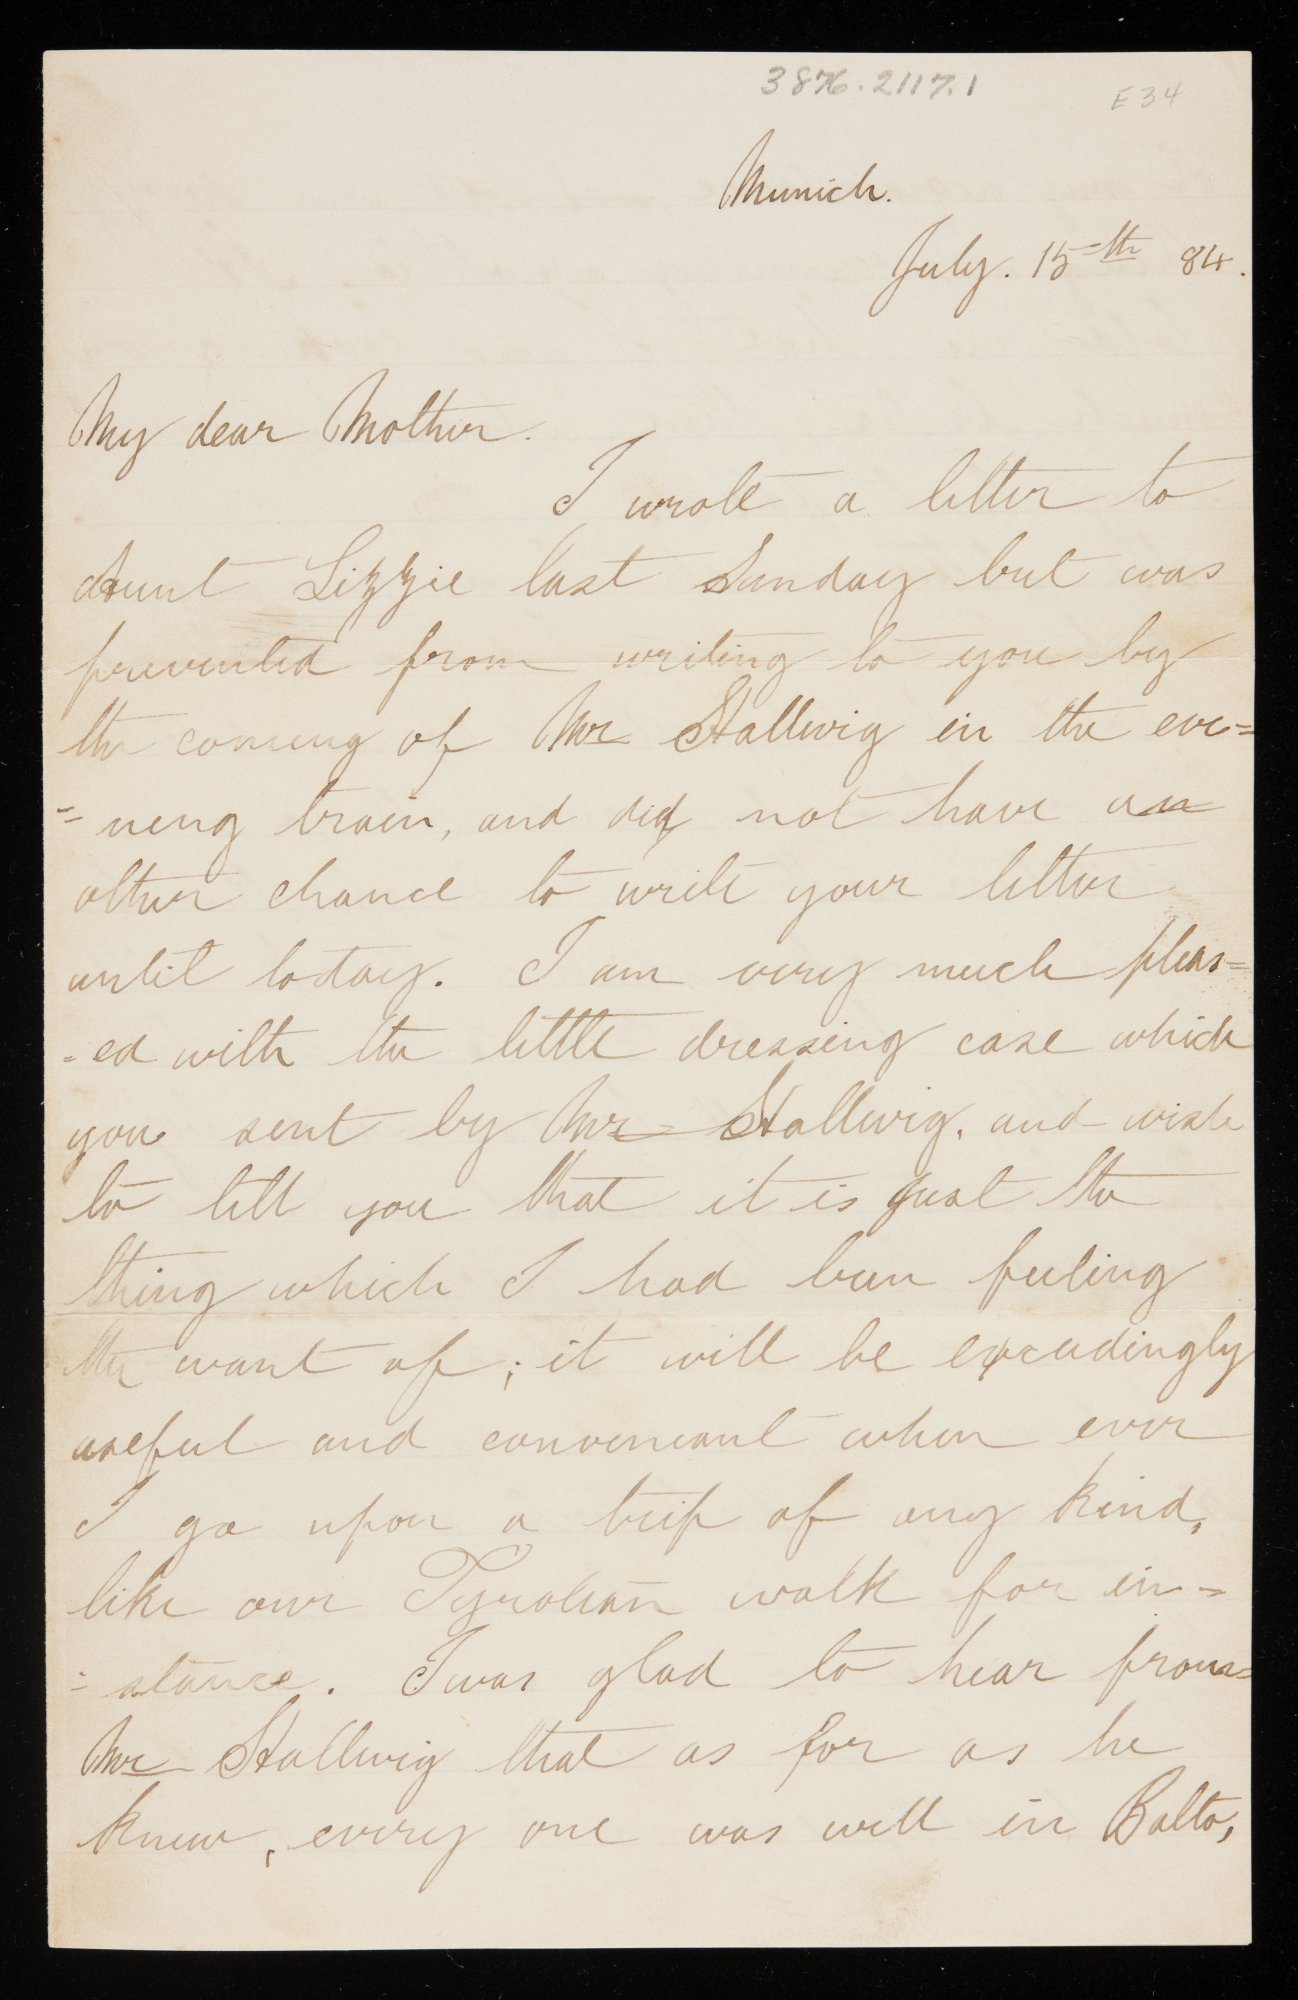 3876.2117.1 E34
Munich.
July. 15th 84.
My dear Mother.
I wrote a letter to
Aunt Lizzie last Sunday but was
prevented from writing to you by
the coming of Mr Stallwig in the eve=
=ning train, and did not have an
other chance to write your letter
until today. I am very much pleas=
=ed with the little dressing case which
you sent by Mr Stallwig, and wish
to tell you that it is just the
thing which I had been feeling
the want of; it will be exceedingly
useful and conveneant when ever
I go upon a trip of any kind,
like our Tyrolean walk for in=
=stance. I was glad to hear from
Mr Stallwig that as far as he
knew, every one was well in Balto,